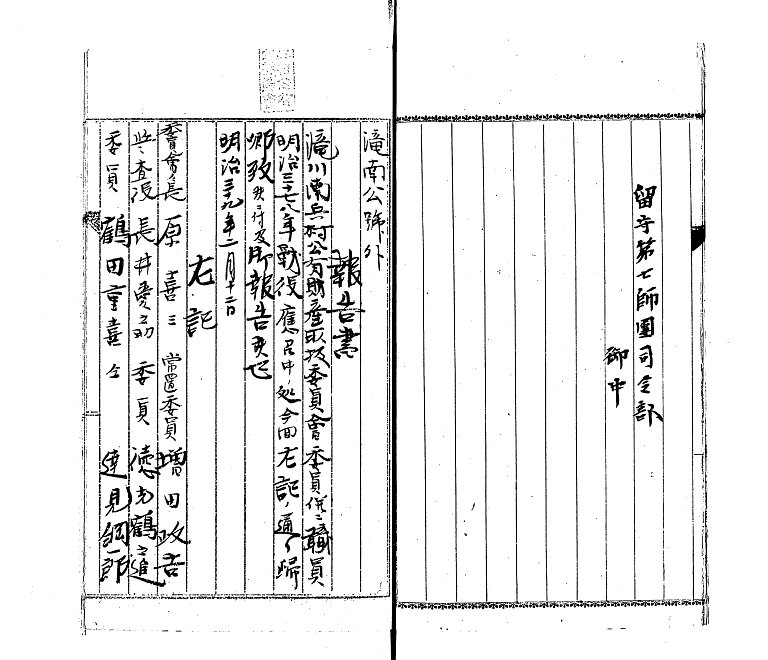 留守第七師團司令部
御中
滝南公號外
報告書
滝川南兵村公有財産取扱委員會委員併ニ職員
明治三十七八年戰役應召中ノ処今回左記ノ通リ歸
郷致候ニ付及御報告候也
明治三十九年二月十二日
左記
委員會長 原喜三 常置委員 増田政吉
監査役 長井愛之助 委員 徳光鶴之進
委員 鶴田重喜 仝 速見綱一郎